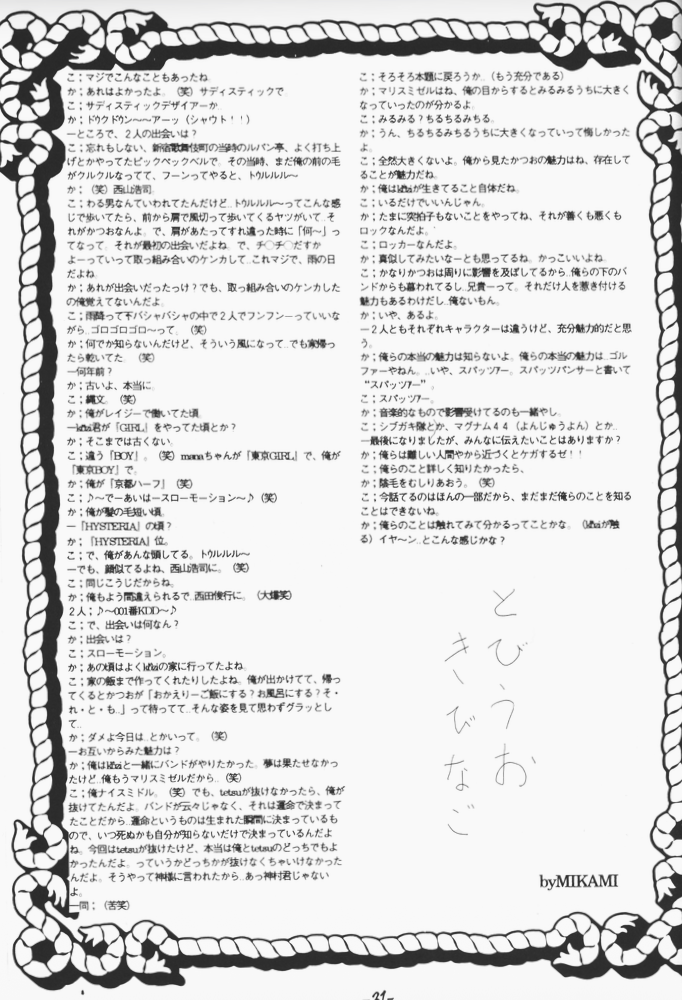 こ；マジでこんなこともあったね。
か；あれはよかったよ。（笑）サディスティックで
こ；サディスティックデザイアーか。
か；ドゥクドゥン～～アーッ（シャウト！！）
―ところで、２人の出会いは？
こ；忘れもしない、新宿歌舞伎町の当時のルパン亭、よく打ち上
げとかやってたビックペックベルで。その当時、まだ俺の前の毛
がクルクルなってて、フーンってやると、トゥルルル～
か；（笑）西山浩司。
こ；わる男なんていわれてたんだけど‥トゥルルル～ってこんな感
じで歩いてたら、前から肩で風切って歩いてくるヤツがいて‥そ
れがかつおなんよ。で、肩があたってすれ違った時に「何～」っ
てなって。それが最初の出会いだよね。で、チ○チ○だすか
よーっていって取っ組み合いのケンカして‥これマジで、雨の日
だよね。
か；あれが出会いだったっけ？でも、取っ組み合いのケンカした
の俺覚えてないんだよ。
こ；雨降って下バシャバシャの中で２人でフンフンーっていいな
がら‥ゴロゴロゴロ～って。（笑）
か；何でか知らないんだけど、そういう風になって‥でも家帰っ
たら乾いてた　（笑）
―何年前？
か；古いよ、本当に。
こ；縄文。（笑）
か；俺がレイジーで働いてた頃。
―közi君が『GIRL』をやってた頃とか？
か；そこまでは古くない。
こ；違う『BOY』。（笑）manaちゃんが『東京GIRL』で、俺が
『東京BOY』で。
か；俺が『京都ハーフ』（笑）
こ；♪～でーあいはースローモーション～♪（笑）
か；俺が髪の毛短い頃。
―『HYSTERIA』の頃？
か；『HYSTERIA』位。
こ；で、俺があんな頭してる。トゥルルル～
―でも、顔似てるよね、西山浩司に。（笑）
こ；同じこうじだからね。
か；俺もよう間違えられるで‥西田俊行に。（大爆笑）
２人；♪～001番KDD～♪
こ；で、出会いは何なん？
か；出会いは？
こ；スローモーション。
か；あの頃はよくköziの家に行ってたよね。
こ；家の飯まで作ってくれたりしたよね。俺が出かけてて、帰っ
てくるとかつおが「おかえりーご飯にする？お風呂にする？そ・
れ・と・も‥」って待ってて‥そんな姿を見て思わずグラッとし
て‥
か；ダメよ今日は‥とかいって。（笑）
―お互いからみた魅力は？
か；俺はköziと一緒にバンドがやりたかった。夢は果たせなかっ
たけど‥俺もうマリスミゼルだから‥（笑）
こ；俺ナイスミドル。（笑）でも、tetsuが抜けなかったら、俺が
抜けてたんだよ。バンドが云々じゃなく、それは運命で決まって
たことだから‥運命というものは生まれた瞬間に決まっているも
ので、いつ死ぬかも自分が知らないだけで決まっているんだよ
ね。今回はtetsuが抜けたけど、本当は俺とtetsuのどっちでもよ
かったんだよ。っていうかどっちかが抜けなくちゃいけなかった
んだよ。そうやって神様に言われたから‥あっ神村君じゃない
よ。
―同；（苦笑）
こ；そろそろ本題に戻ろうか‥（もう充分である）
か；マリスミゼルはね、俺の目からするとみるみるうちに大きく
なっていったのが分かるよ。
こ；みるみる？ちるちるみちる。
か；うん、ちるちるみちるうちに大きくなっていって悔しかった
よ。
こ；全然大きくないよ。俺から見たかつおの魅力はね、存在して
ることが魅力だね。
か；俺はköziが生きてること自体だね。
こ；いるだけでいいんじゃん。
か；たまに突拍子もないことをやってね、それが善くも悪くも
ロックなんだよ。
こ；ロッカーなんだよ。
か；真似してみたいなーとも思ってるね。かっこいいよね。
こ；かなりかつおは周りに影響を及ぼしてるから‥俺らの下のバ
ンドからも慕われてるし‥兄貴ーって。それだけ人を惹き付ける
魅力もあるわけだし‥俺ないもん。
か；いや、あるよ。
―２人ともそれぞれキャラクターは違うけど、充分魅力的だと思
う。
か；俺らの本当の魅力は知らないよ。俺らの本当の魅力は‥ゴル
ファーやねん。‥いや、スパッツァー。スパッツパンサーと書いて
“スパッツァー”。
こ；スパッツァー。
か；音楽的なもので影響受けてるのも一緒やし。
こ；シブガキ隊とか、マグナム４４（よんじゅうよん）とか‥
―最後になりましたが、みんなに伝えたいことはありますか？
か；俺らは難しい人間やから近づくとケガするゼ！！
こ；俺らのこと詳しく知りたかったら、
か；陰毛をむしりあおう。（笑）
こ；今話てるのはほんの一部だから、まだまだ俺らのことを知る
ことはできないね。
か；俺らのことは触れてみて分かるってことかな。（köziが触
る）イヤ～ン‥とこんな感じかな？
とびうお
きびなご
byMIKAMI
-31-